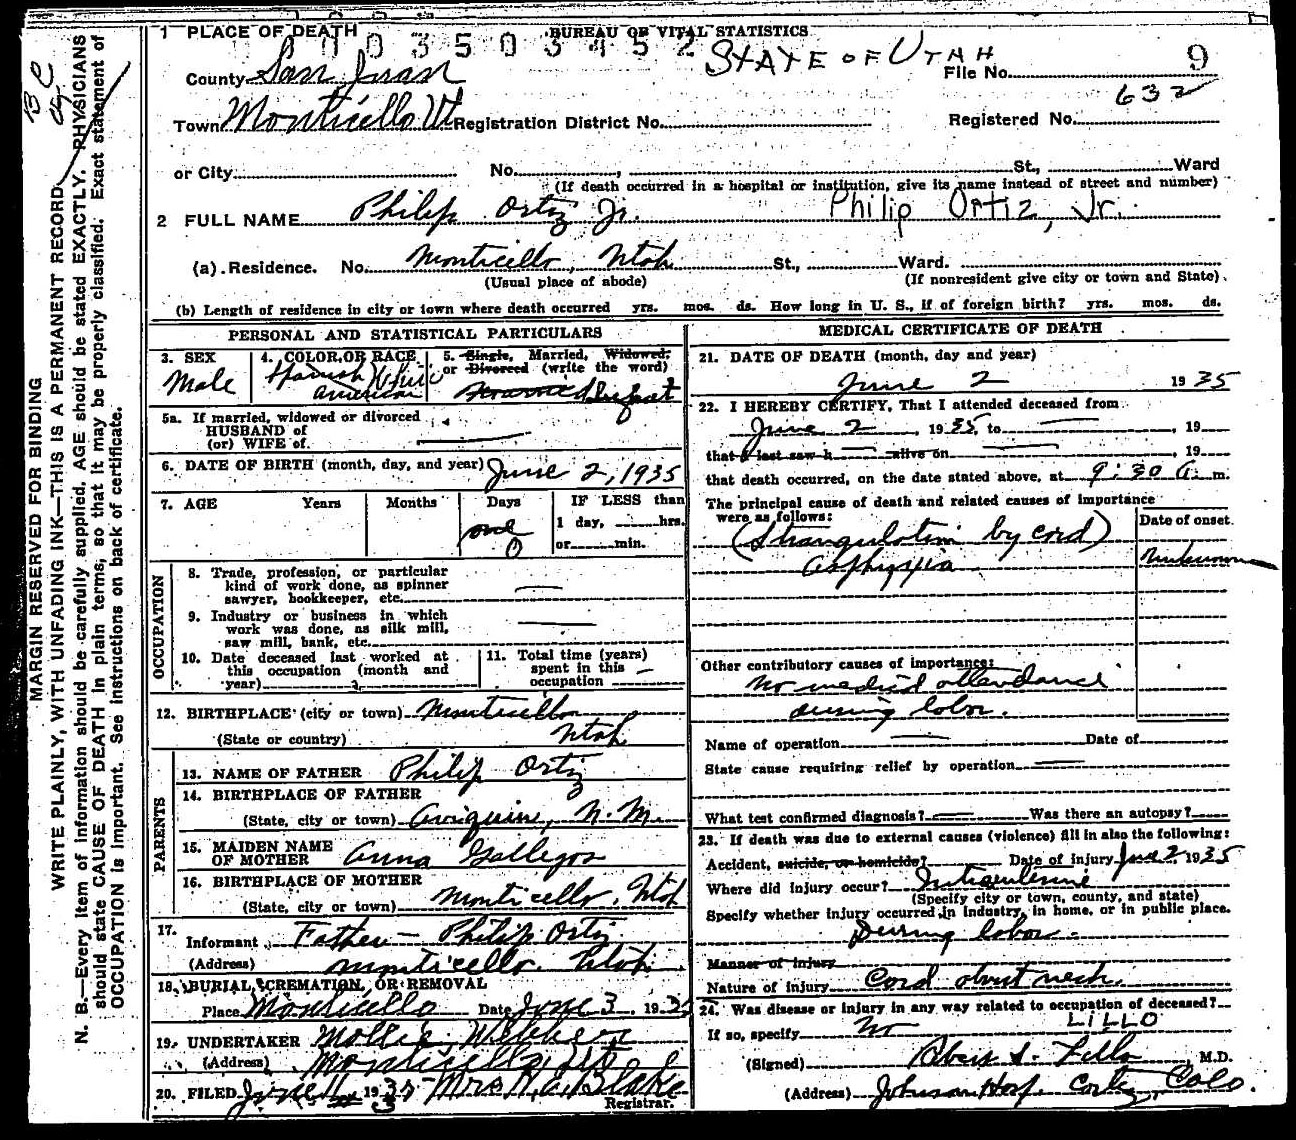 1 PLACE OF DEATH BUREAU OF VITAL STATISTICS
003503452
STATE OF UTAH
County San Juan File No. 9
632
Town Monticello Ut Registration District No. Registered No.
or City No. , St., Ward
(If death occurred in a hospital or institution, give its name instead of street and number)
2 FULL NAME Philip Ortiz Jr. Philip Ortiz, Jr.
(a) Residence. No. Monticello, Utah St., Ward.
(Usual place of abode) (If nonresident give city or town and State)
(b) Length of residence in city or town where death occurred yrs. mos. ds. How long in U. S., if of foreign birth? yrs. mos. ds.
PERSONAL AND STATISTICAL PARTICULARS
3. SEX 4. COLOR OR RACE 5. Single, Married, Widowed,
or Divorced (write the word)
Male Spanish White
American Infant
5a. If married, widowed or divorced
HUSBAND of
(or) WIFE of
6. DATE OF BIRTH (month, day, and year) June 2, 1935
7. AGE Years Months Days IF LESS than
one 1 day, hrs.
0 or min.
OCCUPATION
8. Trade, profession, or particular
kind of work done, as spinner
sawyer, bookkeeper, etc.
9. Industry or business in which
work was done, as silk mill,
saw mill, bank, etc.
10. Date deceased last worked at
this occupation (month and
year)
11. Total time (years)
spent in this
occupation
12. BIRTHPLACE (city or town) Monticello
(State or country) Utah
PARENTS
13. NAME OF FATHER Philip Ortiz
14. BIRTHPLACE OF FATHER
(State, city or town) N. M.
15. MAIDEN NAME
OF MOTHER Anna Gallegos
16. BIRTHPLACE OF MOTHER
(State, city or town) Monticello, Utah
17.
Informant Father - Philip Ortiz
(Address) Monticello. Utah
18. BURIAL, CREMATION, OR REMOVAL
Place Monticello Date June 3, 1935
19. UNDERTAKER Mollie Webber
(Address) Monticello, Ut
20. FILED June 11 1935 Mrs. H. C. Blake
Registrar.
MEDICAL CERTIFICATE OF DEATH
21. DATE OF DEATH (month, day and year)
June 2 1935
22. I HEREBY CERTIFY, That I attended deceased from
June 2, 1935, to , 19
that I last saw h alive on , 19
that death occurred, on the date stated above, at 9:30 a. m.
The principal cause of death and related causes of importance
were as follows: Date of onset.
(Strangulation by cord)
Asphyxia Unknown
Other contributory causes of importance:
No medical attendance
during labor.
Name of operation Date of
State cause requiring relief by operation
What test confirmed diagnosis? Was there an autopsy?
23. If death was due to external causes (violence) fill in also the following:
Accident, suicide, or homicide? Date of injury June 2 1935
Where did injury occur? Intrauterine
(Specify city or town, county, and state)
Specify whether injury occurred in industry, in home, or in public place.
During labor.
Manner of injury
Nature of injury Cord about neck.
24. Was disease or injury in any way related to occupation of deceased?
If so, specify No LILLO
(Signed) Lillo M.D.
(Address) Johnson Hosp. Cortez, Colo.
MARGIN RESERVED FOR BINDING
WRITE PLAINLY, WITH UNFADING INK—THIS IS A PERMANENT RECORD
N. B.—Every item of information should be carefully supplied. AGE should be stated EXACTLY. PHYSICIANS
should state CAUSE OF DEATH in plain terms, so that it may be properly classified. Exact statement of
OCCUPATION is important. See instructions on back of certificate.